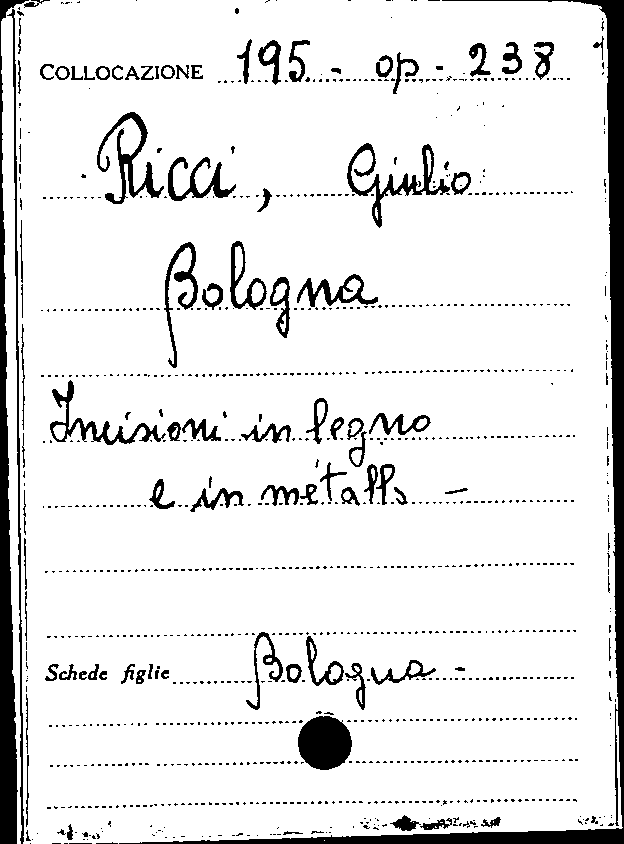 COLLOCAZIONE 195 - op - 238
Ricci, Giulio
Bologna
Incisioni in legno
e in metallo -
Schede figlie Bologna -